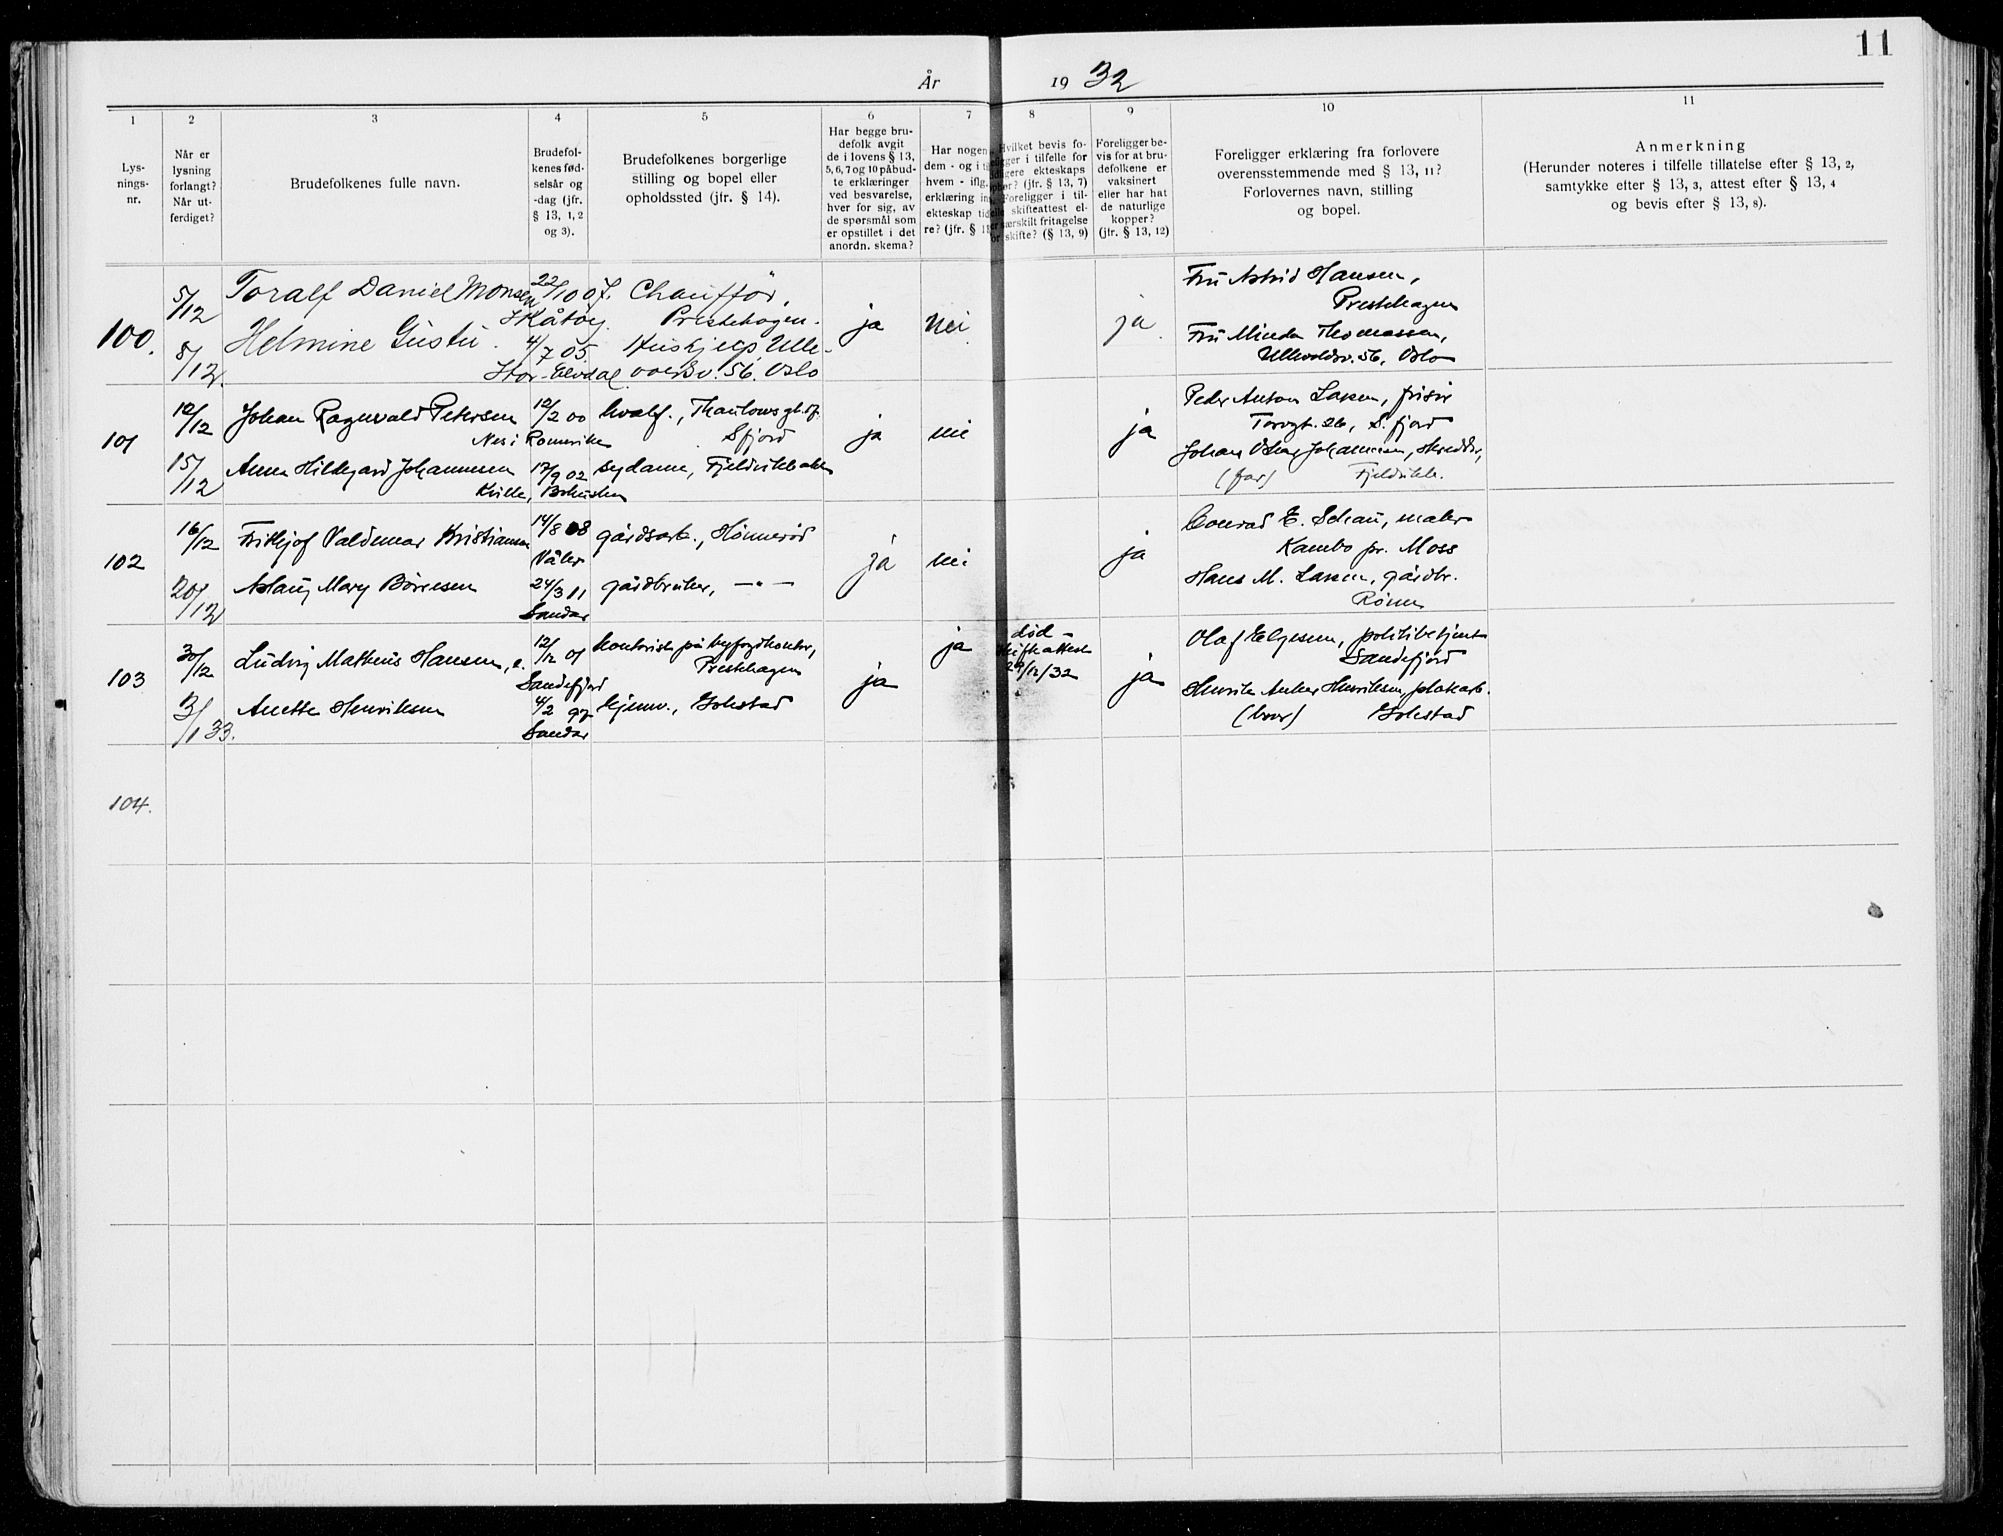 11
År 1932
1 2 3 4 5 6 7 8 9 10 11
Lys-
nings-
nr.
Når er
lysning
forlangt?
Når ut-
ferdiget?
Brudefolkenes fulle navn.
Brudefol-
kenes fød-
selsår og
-dag (jfr.
§ 13, 1, 2
og 3).
Brudefolkenes borgerlige
stilling og bopel eller
opholdssted (jfr. § 14).
Har begge bru-
defolk avgit
de i lovens § 13,
5, 6, 7 og 10 påbud-
te erklæringer
ved besvarelse,
hver for sig, av
de spørsmål som
er opstillet i det
anordn. skema?
Har nogen
dem - og i
hvem - ifig.
erklæring
ekteskap
re? (jfr. §
Hvilket bevis fo-
i tilfelle for
ekteskaps
? (jfr. § 13, 7)
Foreligger i til-
skifteattest el-
særskilt fritagelse
for skifte? (§ 13, 9)
Foreligger be-
vis for at bru-
defolkene er
vaksinert
eller har hat
de naturlige
kopper?
(jfr. § 13, 12)
Foreligger erklæring fra forlovere
overensstemmende med § 13, 11?
Forlovernes navn, stilling
og bopel.
Anmerkning
(Herunder noteres i tilfelle tillatelse efter § 13, 2,
samtykke efter § 13, 3, attest efter § 13, 4
og bevis efter § 13, 8).
100.
5/12
8/12.
Toralf Daniel Monsen 22/10 07. Chauffør,
Skåtøy. Prestehagen.
Helmine Gustu. 4/7 05.
Stor-Elvdal v. 56. Oslo
ja nei ja.
Fru Astrid Hansen,
Prestehagen
Fru Minda Thomassen,
Ullevoldsv. 56, Oslo
101
12/12
15/12
Johan Ragnvald Petersen 12/2 00 hvalf., Thaulows gt. 17.
Nes i Romerike Sfjord
Anna Hildegard Johannesen 17/9 02 sydame, Fjeldvikbakken
Kville, Bohuslen
ja nei ja
Peder Anton Larsen, frisør
Torvgt. 26, S.fjord
Johan Oskar Johannesen, skredder,
(far) Fjeldvikb.
102
16/12
20/12
Fritjof Valdemar Kristiansen 14/8 08 gårdsarb., Hønnerød
Våler
Aslaug Mary Børresen 24/3 11 gårdbruker, —"—
Sandar
ja nei ja
Conrad E. Schau, maler
Kambo pr. Moss
Hans M. Larsen, gårdbr.
103
30/12
3/1 33.
Ludvig Matheus Hansen, e. 12/12 01 kontorist på byfogdkontor,
Sandefjord Prestehagen
Anette Henriksen 4/2 97 hjemv., Gokstad
Sandar
ja ja
død-
skifteattest
29/12/32
ja
Olaf Elgesem, politibetjent
Sandefjord
Henrik Anker Henriksen, platearb.
(bror) Gokstad
104.